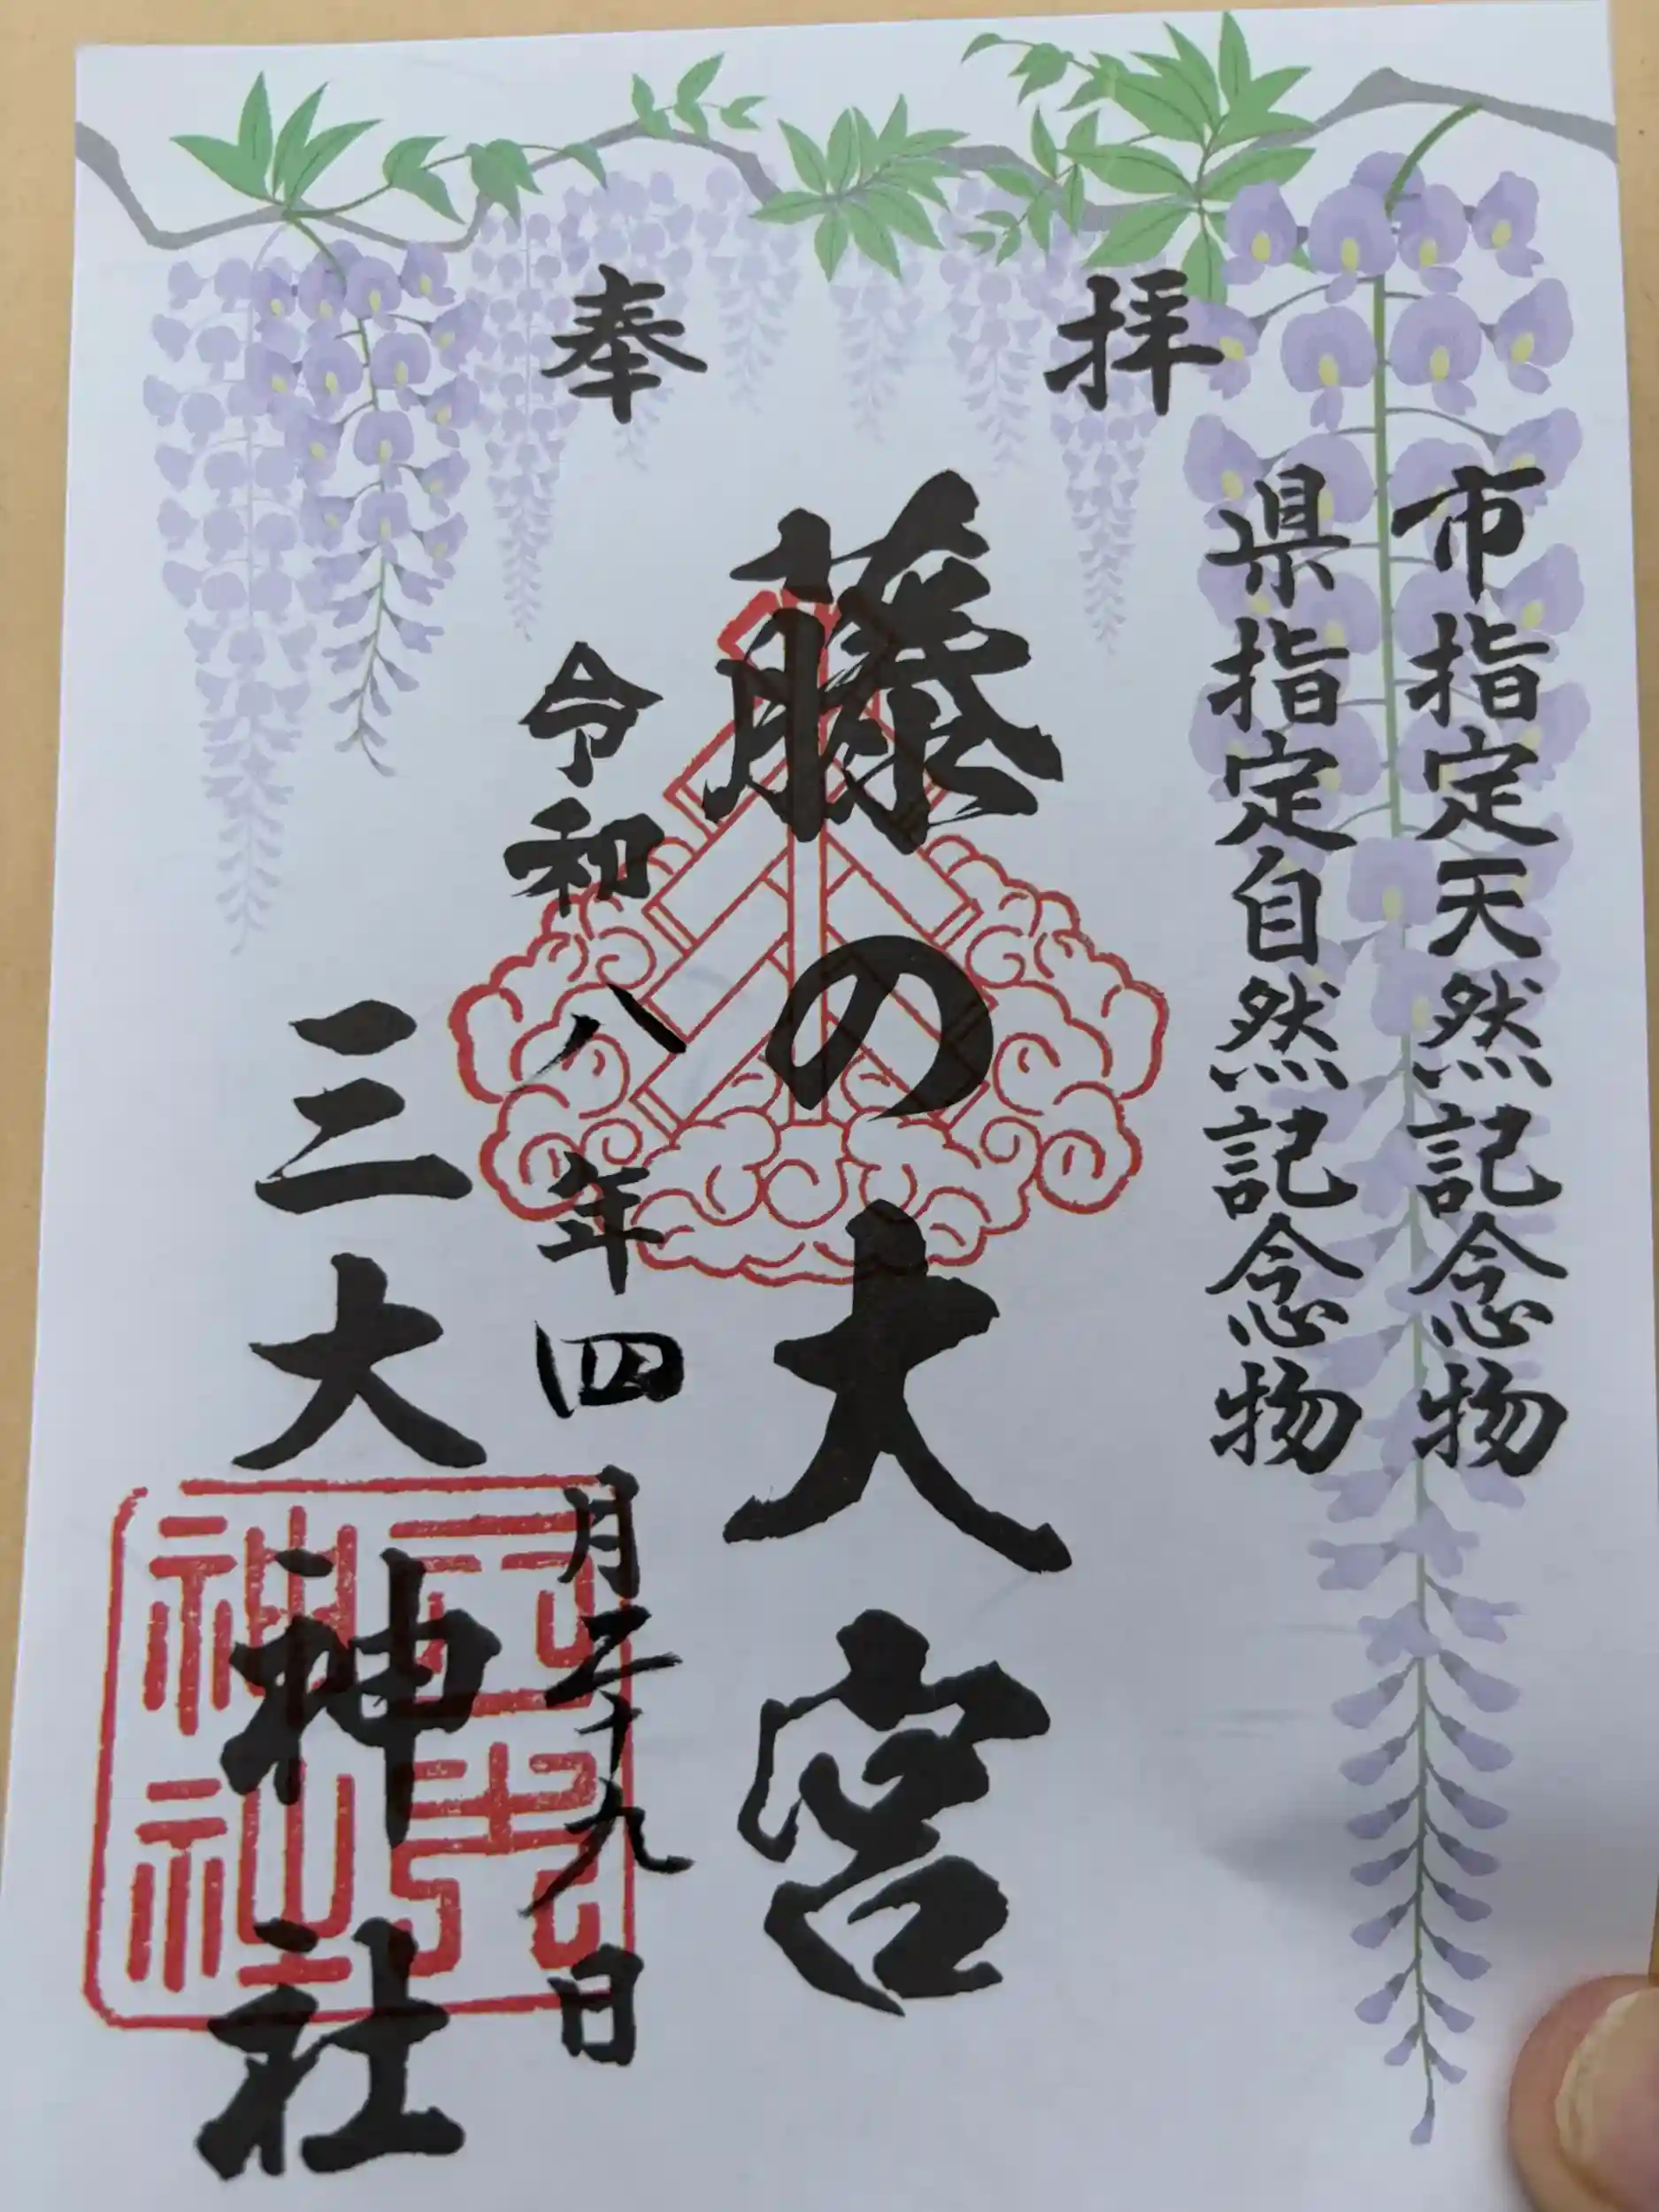 市指定天然記念物
県指定自然記念物
奉拝
藤の大宮
令和八年四月二十九日
三大神社